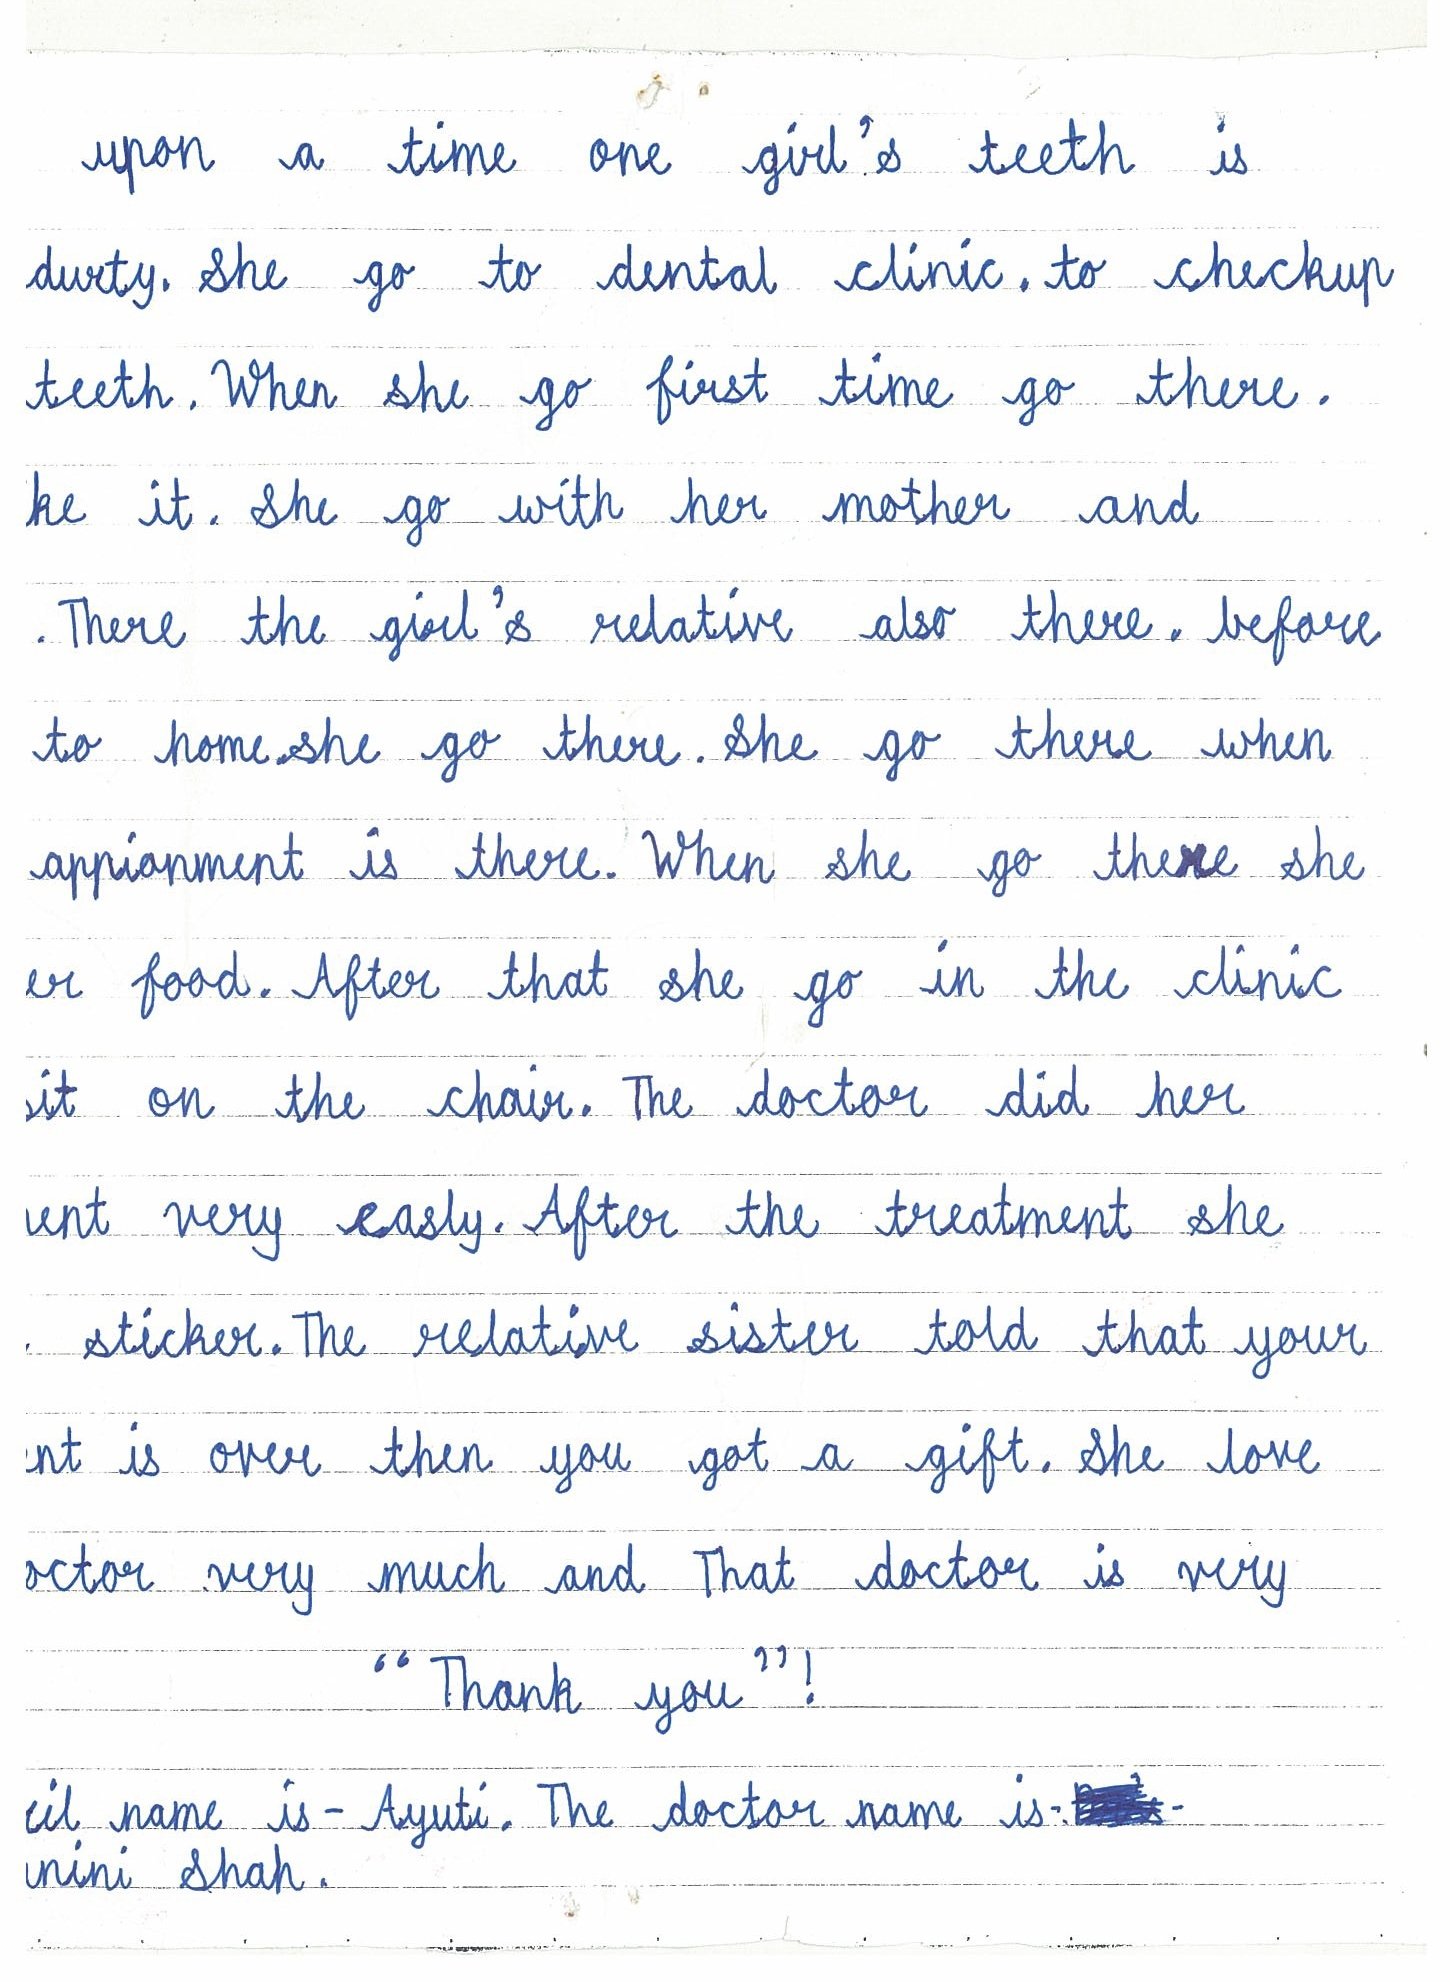 upon a time one girl's teeth is
durty. She go to dental clinic. to checkup
teeth. When she go first time go there.
ke it. She go with her mother and
. There the girl's relative also there. before
to home. she go there. She go there when
appianment is there. When she go there she
er food. After that she go in the clinic
sit on the chair. The doctor did her
ent very easly. After the treatment she
sticker. The relative sister told that your
nt is over then you got a gift. She love
octor very much and That doctor is very
"Thank you"!
name is - Ayuti. The doctor name is -
nini Shah.